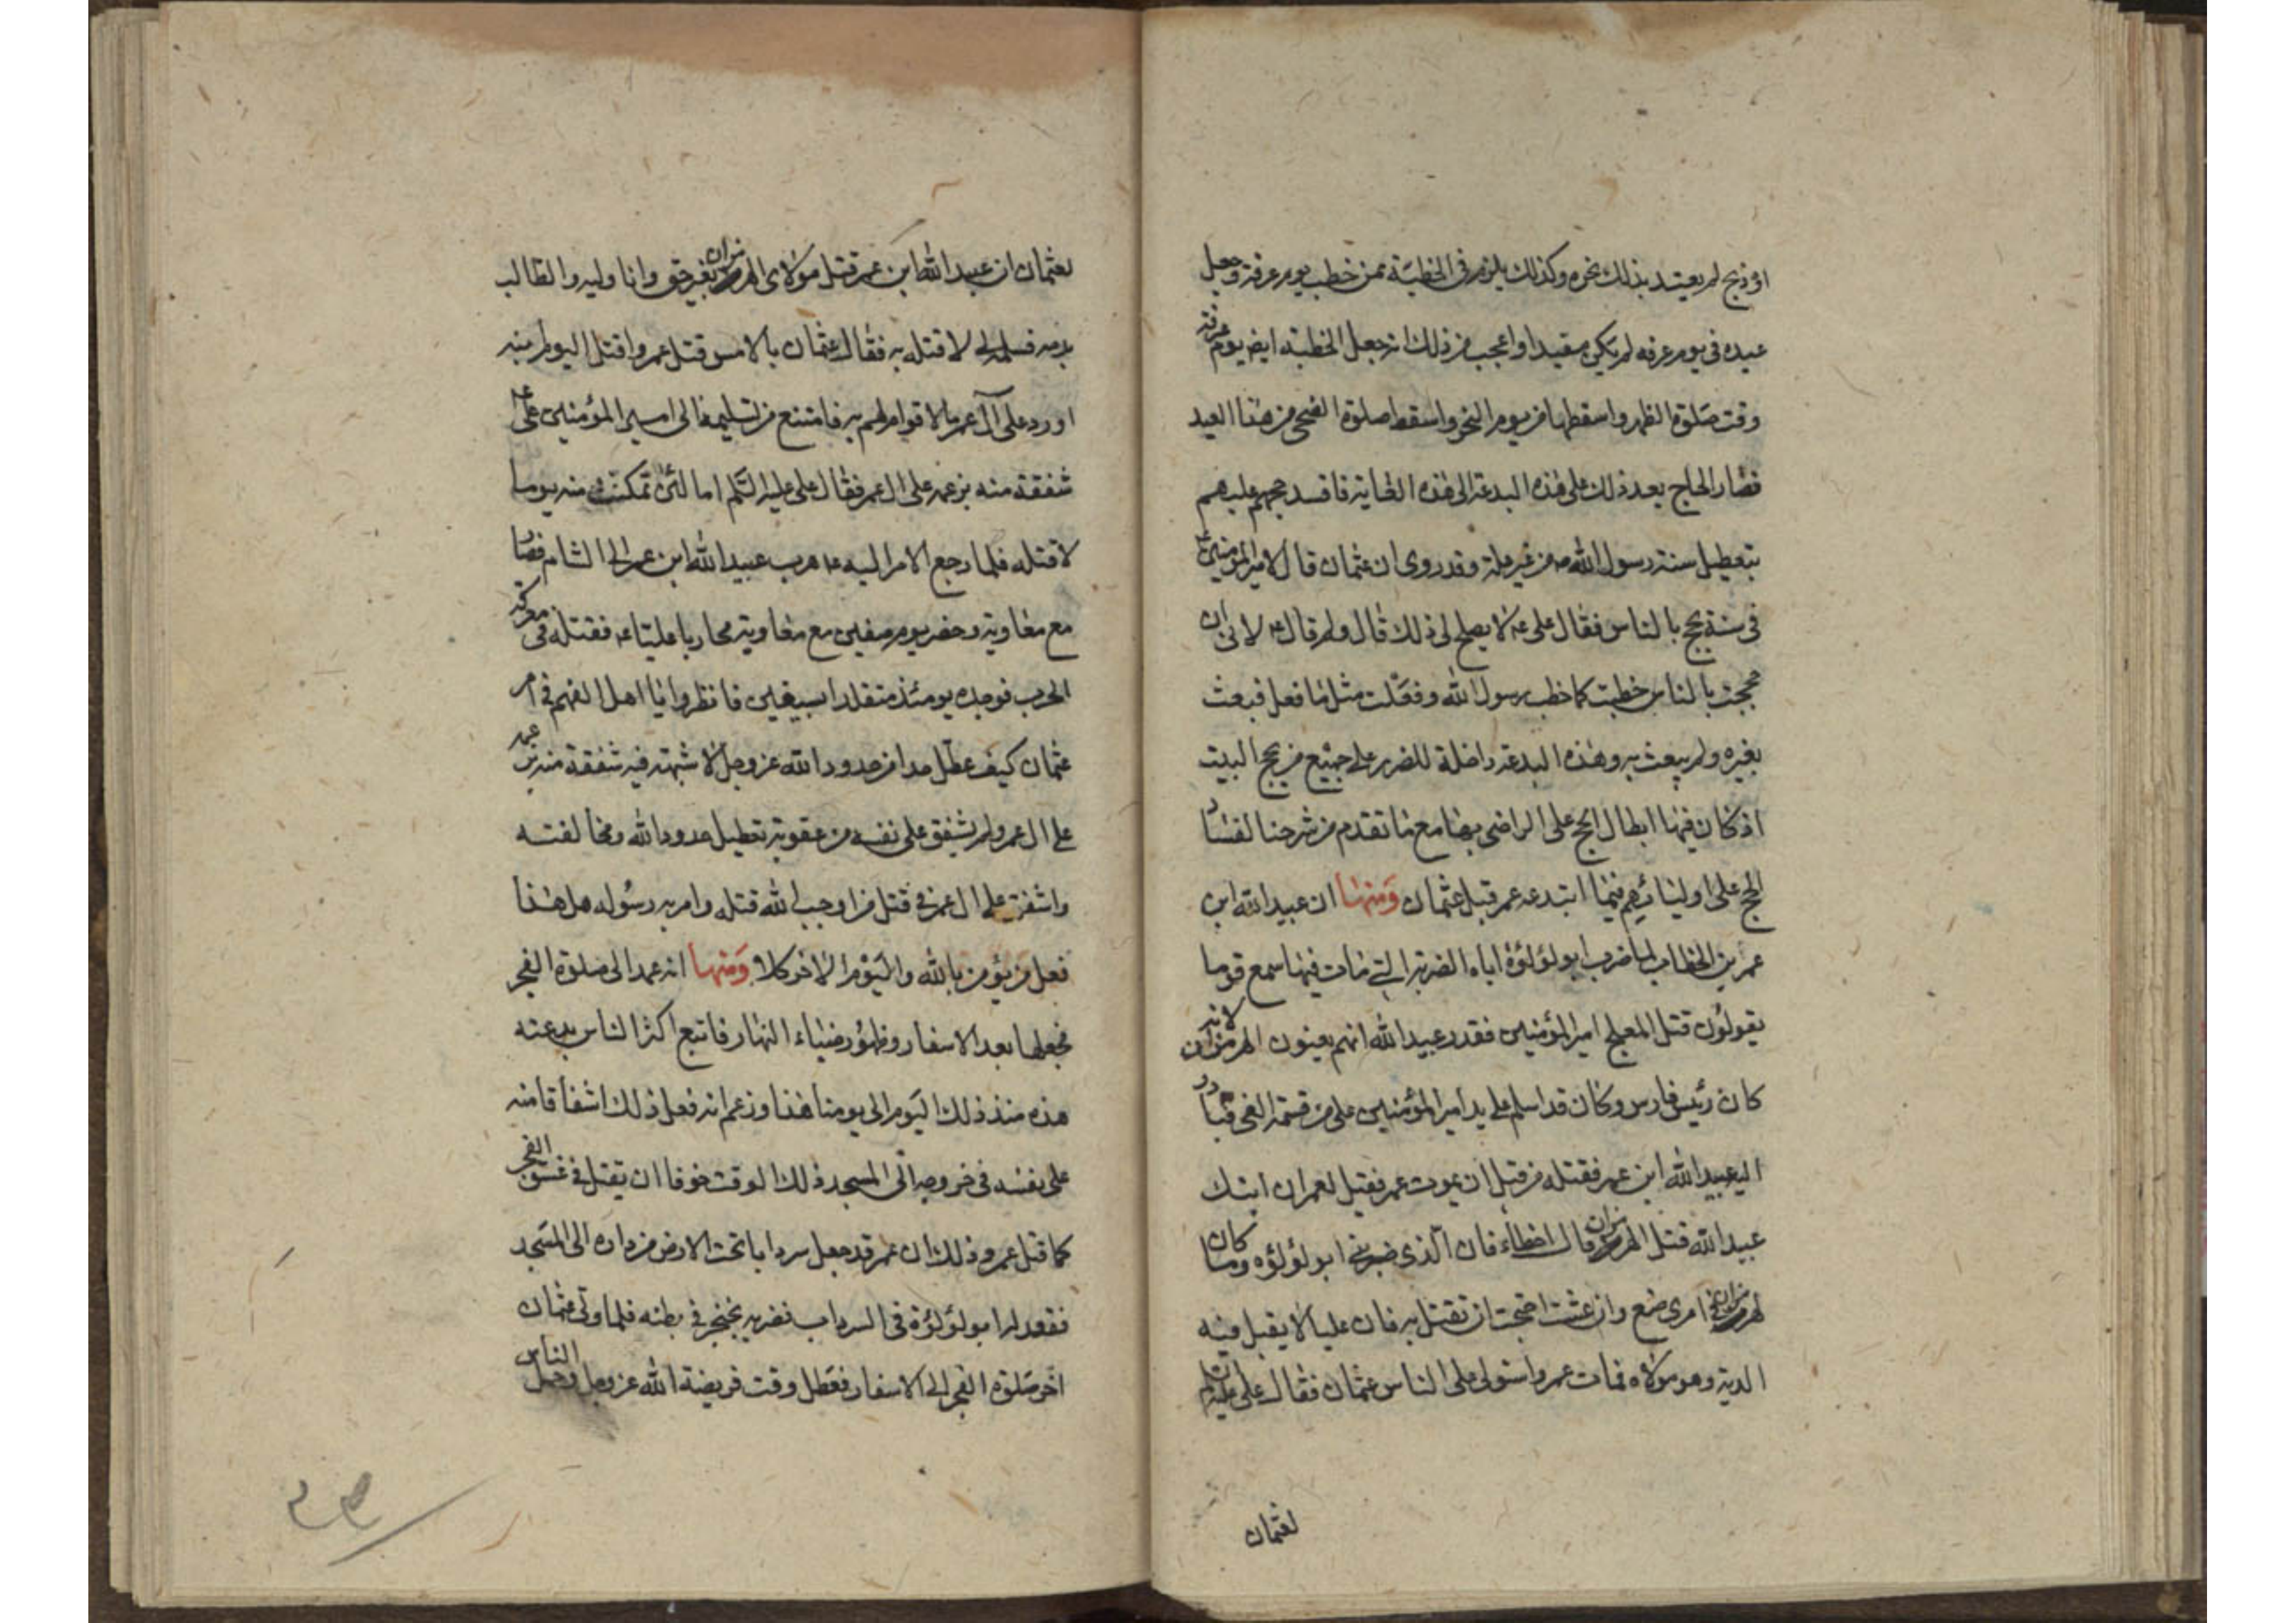 او ذبح لم يعتد بذلك نحره وكذلك يلزم في الخطبة ممن خطب يوم عرفة وجعل
عيده في يوم عرفه لم يكن بمقيد او اعجب من ذلك انه جعل الخطبة ايض يوم عرفة
وقت صلوة الظهر واسقطها من يوم النحر واسقط صلوة الضحى من هذا العيد
فصار الحاج بعد ذلك على هذه البدعة الى هذه الغاية فافسد حجهم عليهم
بتعطيل سنة رسول الله ص من غير علة وقد روى ان عثمان قال لامير المؤمنين ع
في سنة يحج بالناس فقال على ع لا يصلح لى ذلك قال ولم قال ع لانى ان
حججت بالناس خطبت كما خطب رسول الله وفعلت مثل ما فعل فبعث
بغيره ولم يبعث به وهذه البدعة داخلة للضرر على جميع من يحج البيت
اذ كان فيها ابطال الحج على الراضى بها مع ما تقدم من شرحنا لفساد
الحج على اوليائهم فيما ابتدعه عمر قبل عثمان ومنها ان عبيد الله ابن
عمر بن الخطاب لما ضرب ابو لؤلؤة اباه الضربة التي مات فيها سمع قوما
يقولون قتل العلج امير المؤمنين فقدر عبيد الله انهم يعنون الهرمزان لانه
كان رئيس فارس وكان قد اسلم على يد امير المؤمنين على من قسمة الفى فبادر
اليه عبيد الله ابن عمر فقتله من قبل ان يموت عمر فقيل لعمر ان ابنك
عبيد الله قتل الهرمزان فقال اخطاء فان الذى ضربني ابو لؤلؤه وما كان
لهرمزان في امرى صنع وان عشت احتجت ان تقتل به فان عليا لا يقبل منه
الدية وهو مولاه فمات عمر واستولى على الناس عثمان فقال على عليه السلم
لعثمان
لعثمان ان عبيد الله ابن عمر قتل مولاى الهرمزان بغير حق وانا وليه والطالب
بدمه فسلمه الى لاقتله به فقال عثمان بالامس قتل عمر واقتل اليوم ابنه
اورد على آل عمر ما لا قوام لهم به فامتنع من تسليمه الى امير المؤمنين على ع
شفقة منه بزعمه على ال عمر فقال على عليه السلم اما لئن تمكنت منه يوما
لاقتله فلما رجع الامر اليه ع هرب عبيد الله ابن عمر الى الشام فصار
مع معاوية وحضر يوم صفين مع معاوية محاربا عليا ع فقتله في معركة
الحرب فوجده يومئذ متقلدا بسيفين فانظروا يا اهل الفهم في امر
عثمان كيف عطل حدا من حدود الله عز وجل لا شبهة فيه شفقة منه بزعمه
على ال عمر ولم يشفق على نفسه من عقوبة تعطيل حدود الله ومخالفته
واشفق على ال عمر في قتل من اوجب الله قتله وامر به رسوله هل هذا
فعل من يؤمن بالله واليوم الاخر كلا ومنها انه عمد الى صلوة الفجر
فجعلها بعد الاسفار وظهور ضياء النهار فاتبع اكثر الناس بدعته
هذه منذ ذلك اليوم الى يومنا هذا وزعم انه فعل ذلك اشفاقا منه
على نفسه في خروجه الى المسجد ذلك الوقت خوفا ان يقتل في غسق الفجر
كما قتل عمر وذلك ان عمر قد جعل سردابا تحت الارض من داره الى المسجد
فقعد له ابو لؤلؤة في السرداب فضربه بخنجر في بطنه فلما ولى عثمان
اخر صلوة الفجر الى الاسفار فعطل وقت فريضة الله عز وجل وحمل الناس